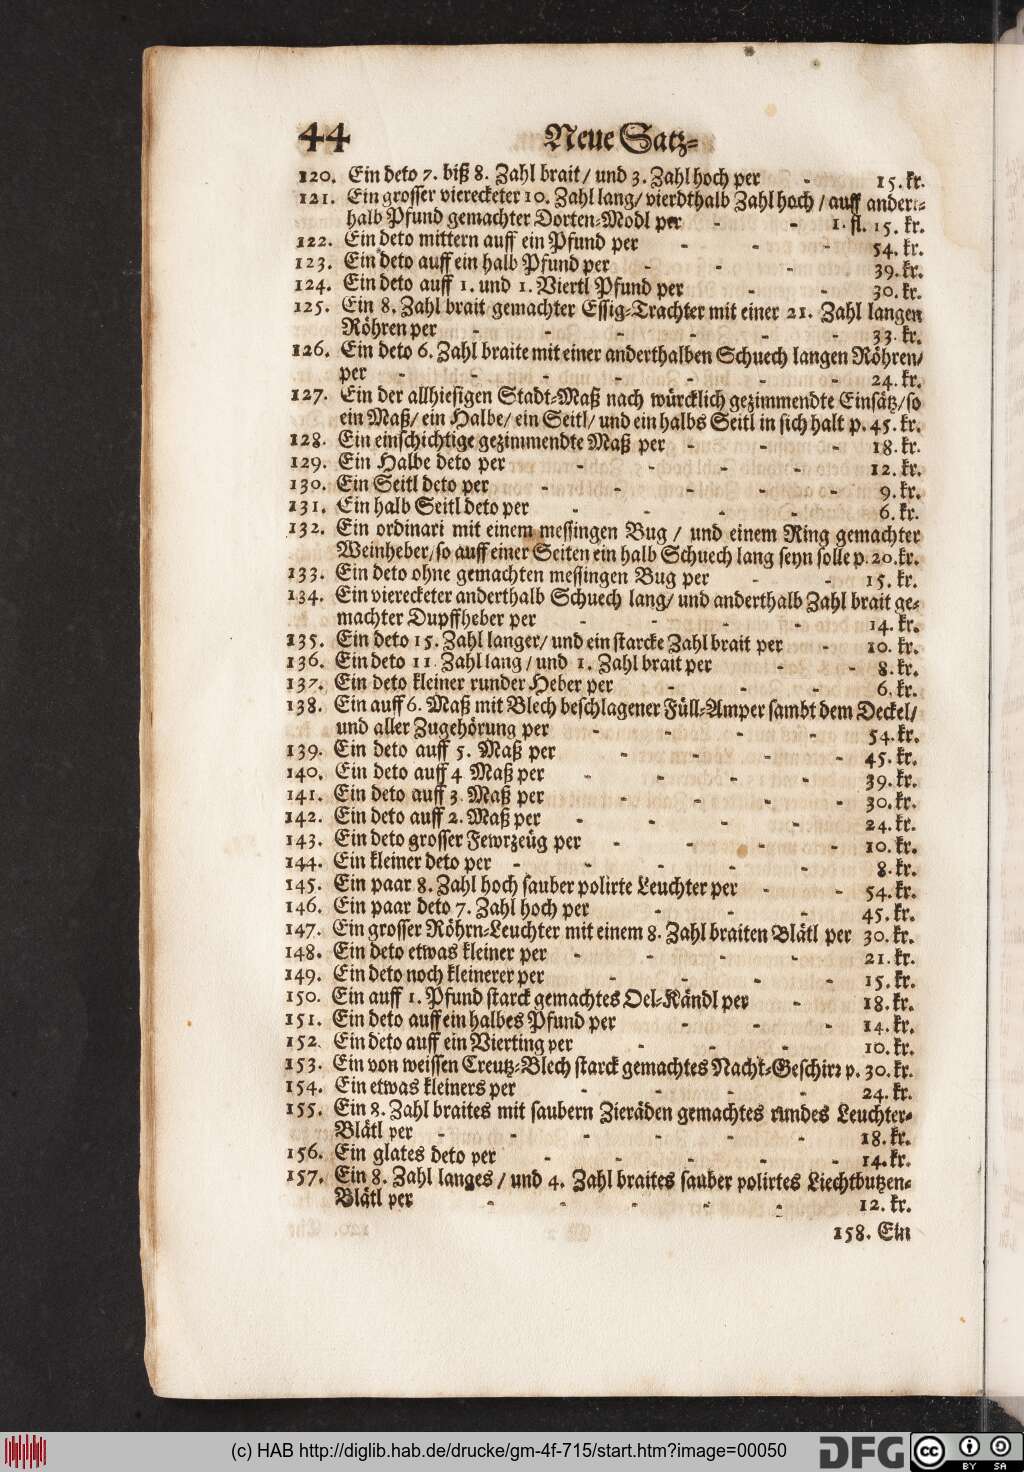 44 Neue Satz-
120. Ein deto 7. biß 8. Zahl brait/ und 3. Zahl hoch per - 15. kr.
121. Ein grosser vierecketer 10. Zahl lang/ vierdthalb Zahl hoch / auff andert-
halb Pfund gemachter Dorten-Modl per - - 1. fl. 15. kr.
122. Ein deto mittern auff ein Pfund per - - - 54. kr.
123. Ein deto auff ein halb Pfund per - - - 39. kr.
124. Ein deto auff 1. und 1. Viertl Pfund per - - 30. kr.
125. Ein 8. Zahl brait gemachter Essig-Trachter mit einer 21. Zahl langen
Röhren per - - - - - - 33. kr.
126. Ein deto 6. Zahl braite mit einer anderthalben Schuech langen Röhren/
per - - - - - - - 24. kr.
127. Ein der allhiesigen Stadt-Maß nach würcklich gezimmendte Einsätz/ so
ein Maß/ ein Halbe/ ein Seitl/ und ein halbs Seitl in sich halt p. 45. kr.
128. Ein einschichtige gezimmendte Maß per - - - 18. kr.
129. Ein Halbe deto per - - - - 12. kr.
130. Ein Seitl deto per - - - - - 9. kr.
131. Ein halb Seitl deto per - - - - 6. kr.
132. Ein ordinari mit einem messingen Bug / und einem Ring gemachter
Weinheber/ so auff einer Seiten ein halb Schuech lang seyn solle p. 20. kr.
133. Ein deto ohne gemachten messingen Bug per - - 15. kr.
134. Ein vierecketer anderthalb Schuech lang/ und anderthalb Zahl brait ge-
machter Dupffheber per - - - - 14. kr.
135. Ein deto 15. Zahl langer/ und ein starcke Zahl brait per - 10. kr.
136. Ein deto 11 Zahl lang / und 1. Zahl brait per - - 8. kr.
137. Ein deto kleiner runder Heber per - - - 6. kr.
138. Ein auff 6. Maß mit Blech beschlagener Füll-Amper sambt dem Deckel/
und aller Zugehörung per - - - - 54. kr.
139. Ein deto auff 5. Maß per - - - - 45. kr.
140. Ein deto auff 4 Maß per - - - - 39. kr.
141. Ein deto auff 3. Maß per - - - - 30. kr.
142. Ein deto auff 2. Maß per - - - - 24. kr.
143. Ein deto grosser Fewrzeüg per - - - - 10. kr.
144. Ein kleiner deto per - - - - - 8. kr.
145. Ein paar 8. Zahl hoch sauber polirte Leuchter per - - 54. kr.
146. Ein paar deto 7. Zahl hoch per - - - 45. kr.
147. Ein grosser Röhrn-Leuchter mit einem 8. Zahl braiten Blätl per 30. kr.
148. Ein deto etwas kleiner per - - - - 21. kr.
149. Ein deto noch kleinerer per - - - - 15. kr.
150. Ein auff 1. Pfund starck gemachtes Oel-Kändl per - 18. kr.
151. Ein deto auff ein halbes Pfund per - - - 14. kr.
152. Ein deto auff ein Vierting per - - - 10. kr.
153. Ein von weissen Creutz-Blech starck gemachtes Nacht-Geschirr p. 30. kr.
154. Ein etwas kleiners per - - - - 24. kr.
155. Ein 8. Zahl braites mit saubern Zieräden gemachtes rundes Leuchter-
Blätl per - - - - - - 18. kr.
156. Ein glates deto per - - - - - 14. kr.
157. Ein 8. Zahl langes / und 4. Zahl braites sauber polirtes Liechtbutzen-
Blätl per - - - - - 12. kr.
158. Ein
(c) HAB http://diglib.hab.de/drucke/gm-4f-715/start.htm?image=00050
DFG
cc BY SA